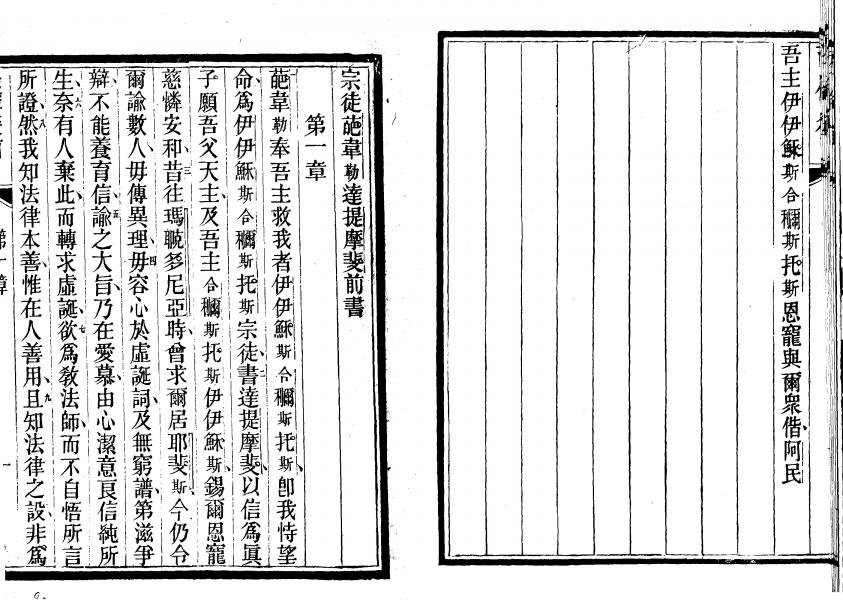 吾主伊伊穌斯合穪斯托斯恩寵與爾衆偕阿民
宗徒葩韋勒達提摩斐前書
第一章
葩韋勒奉吾主救我者伊伊穌斯合穪斯托斯卽我恃望
命爲伊伊穌斯合穪斯托斯宗徒二書達提摩斐以信爲眞
子願吾父天主及吾主合穪斯托斯伊伊穌斯錫爾恩寵
慈憐安和三昔往瑪睕多尼亞時曾求爾居耶斐斯今仍令
爾諭數人毋傳異理四毋容心於虛誕詞及無窮譜第滋爭
辯不能養育信五諭之大旨乃在愛慕由心潔意良信純所
生六奈有人棄此而轉求虛誕七欲爲敎法師而不自悟所言
所證八然我知法律本善惟在人善用九且知法律之設非爲
第一章
一